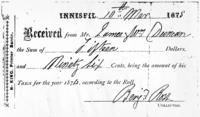 INNISFIL 10th Mar 1875
Received from Mr. James Wm Duncan
the Sum of Fifteen Dollars,
and Ninety Six Cents, being the amount of his
Taxes for the year 1874, according to the Roll.
Benj. Ross
COLLECTOR.